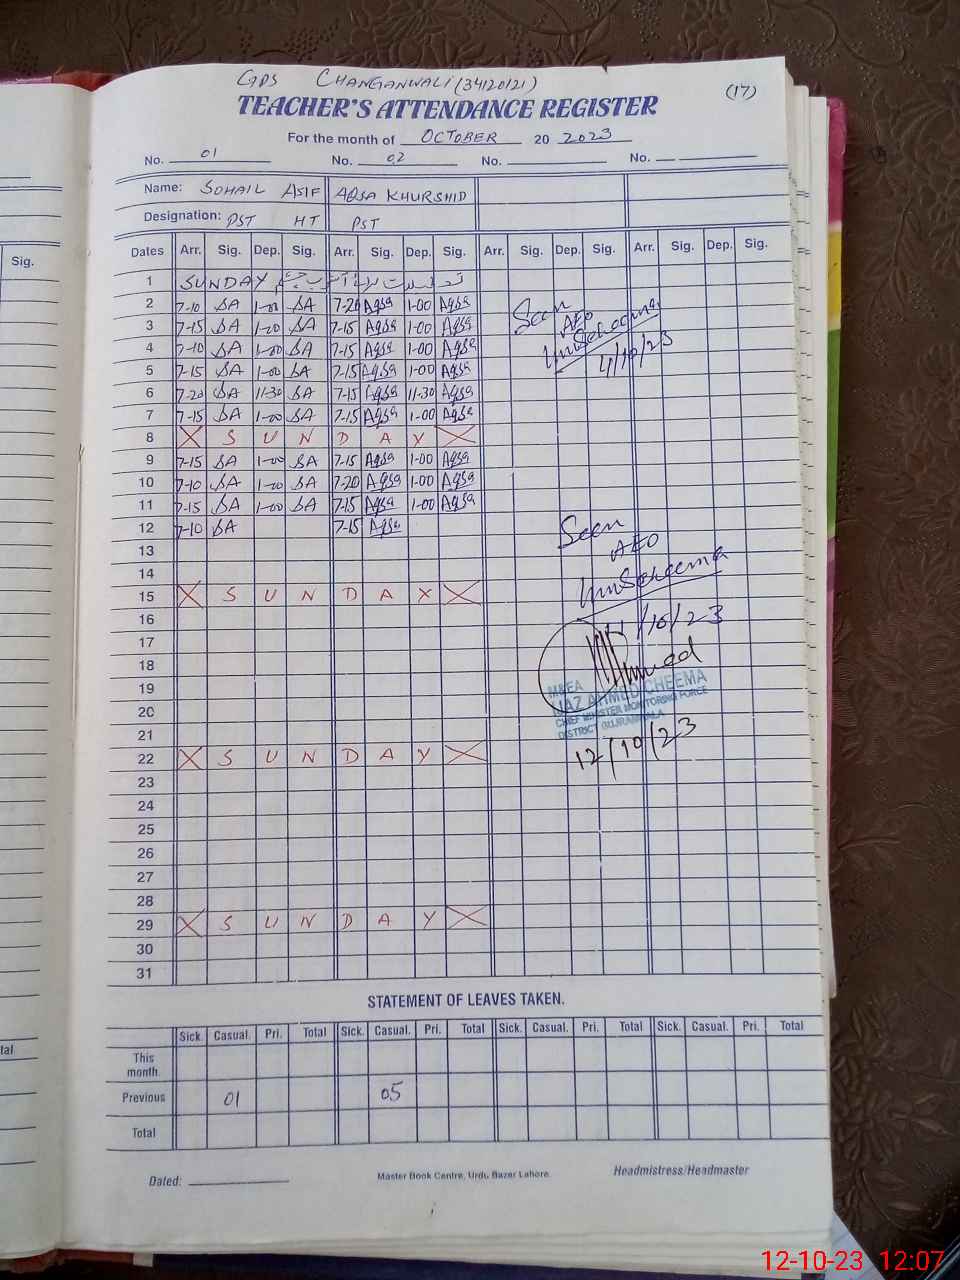 Sig.
tal
GPS CHANGANWALI (34120121)
(17)
TEACHER'S ATTENDANCE REGISTER
For the month of OCTOBER 20 2023
No. 01 No. 02 No. No.
Name: SOHAIL ASIF AQSA KHURSHID
Designation: PST HT PST
Dates Arr. Sig. Dep. Sig. Arr. Sig. Dep. Sig. Arr. Sig. Dep. Sig. Arr. Sig. Dep. Sig.
1 SUNDAY
2 7-10 SA 1-00 SA 7-20 Aqsa 1-00 Aqsa
3 7-15 SA 1-00 SA 7-15 Aqsa 1-00 Aqsa
4 7-10 SA 1-00 SA 7-15 Aqsa 1-00 Aqsa
5 7-15 SA 1-00 SA 7-15 Aqsa 1-00 Aqsa
6 7-20 SA 11-30 SA 7-15 Aqsa 11-30 Aqsa
7 7-15 SA 1-00 SA 7-15 Aqsa 1-00 Aqsa
8 X S U N D A Y X
9 7-15 SA 1-00 SA 7-15 Aqsa 1-00 Aqsa
10 7-10 SA 1-00 SA 7-20 Aqsa 1-00 Aqsa
11 7-15 SA 1-00 SA 7-15 Aqsa 1-00 Aqsa
12 7-10 SA 7-15 Aqsa
13
14
15 X S U N D A Y X
16
17
18
19
20
21
22 X S U N D A Y X
23
24
25
26
27
28
29 X S U N D A Y X
30
31
Seen
AEO
4/10/23
Seen
AEO
11/10/23
M&EA
AHMED CHEEMA
CHIEF MINISTER MONITORING FORCE
DISTRICT GUJRANWALA
12/10/23
STATEMENT OF LEAVES TAKEN.
Sick. Casual. Pri. Total Sick. Casual. Pri. Total Sick. Casual. Pri. Total Sick. Casual. Pri. Total
This
month
Previous 01 05
Total
Dated: Master Book Centre, Urdu Bazar Lahore. Headmistress/Headmaster
12-10-23 12:07